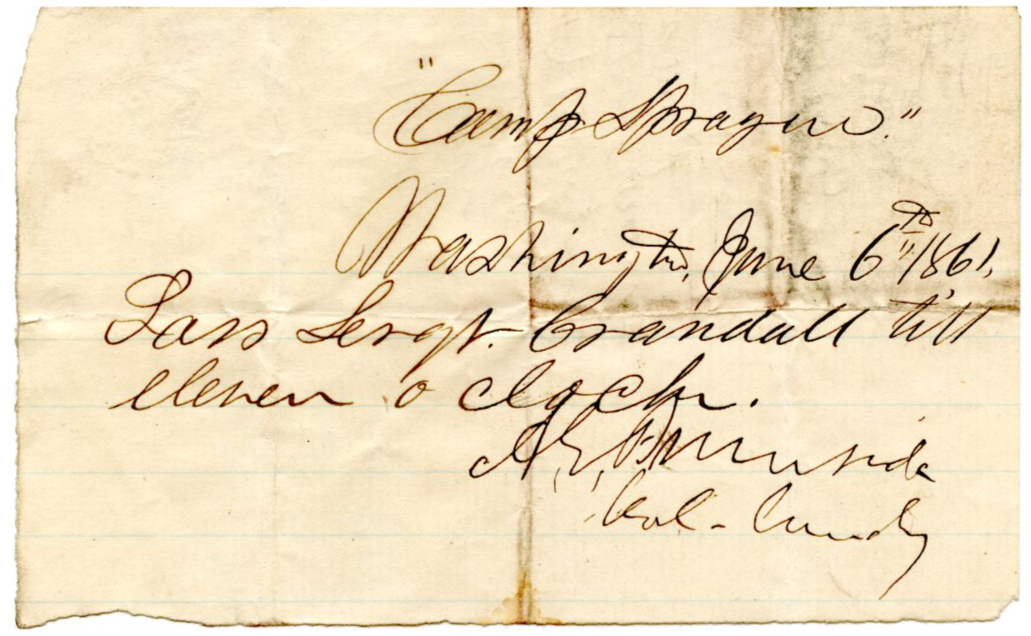 "Camp Sprague."
Washington, June 6th 1861.
Pass Sergt. Crandall till
eleven o clock.
A. E. Burnside
Col. Comdg